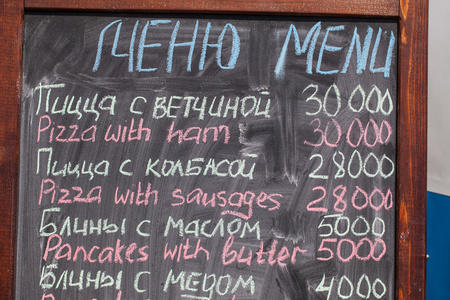 МЕНЮ MENU
Пицца с ветчиной 30 000
Pizza with ham 30 000
Пицца с колбасой 28 000
Pizza with sausages 28 000
Блины с маслом 5000
Pancakes with butter 5000
Блины с медом 4000